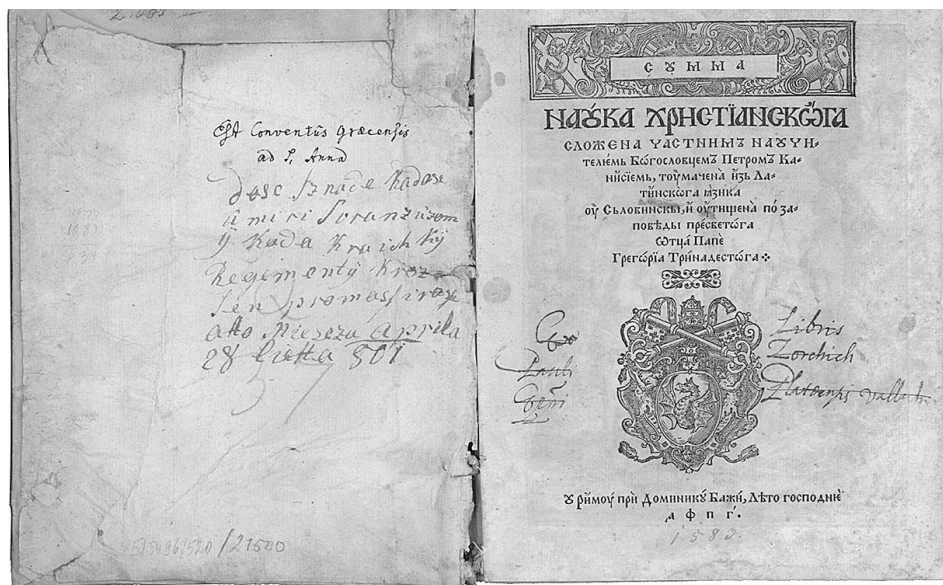 Est Conventus Græcensis
ad S. Anna
dose Iznade Kadase
ü miri Franzüsom
ÿ Kada Kraichkÿ
Regementÿ Kroz
Sen promassirasse
atto Miesezu Aprila
28 801
251961520/21500
СУММА
НАУКА ХРИСТЇАНСКѠГА
СЛОЖЕНА ЧАСТНИМЬ НАУЧИ-
телиемь Бѡгословцемь Петромь Ка-
нисїемь, тоумачена изь Ла-
тинскѡга ꙗзика
оу Сьловински, и оутищена по за-
повѣды пресветѡга
ѿтца Папе
Грегѡрїа Тринадестѡга
Ex
Pauli
Libris
Zorchich
Platensis Vallach.
У Римоу при Доминику Бажи, Лѣто господнѥ
а ф п г.
1583